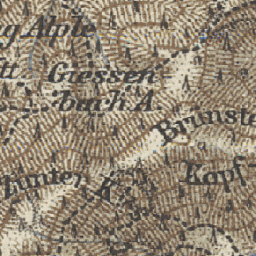 g Alple
tt
Giessen
bach A.
Brunste
Hinter K
Kapf